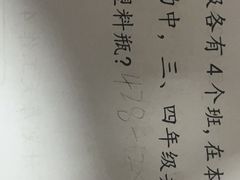 级各有4个班,在本
动中,三、四年级
塑料瓶?478